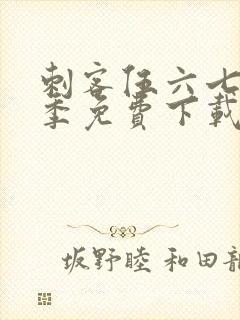 刺客伍六七
季免費下載
坂野睦 和田龍